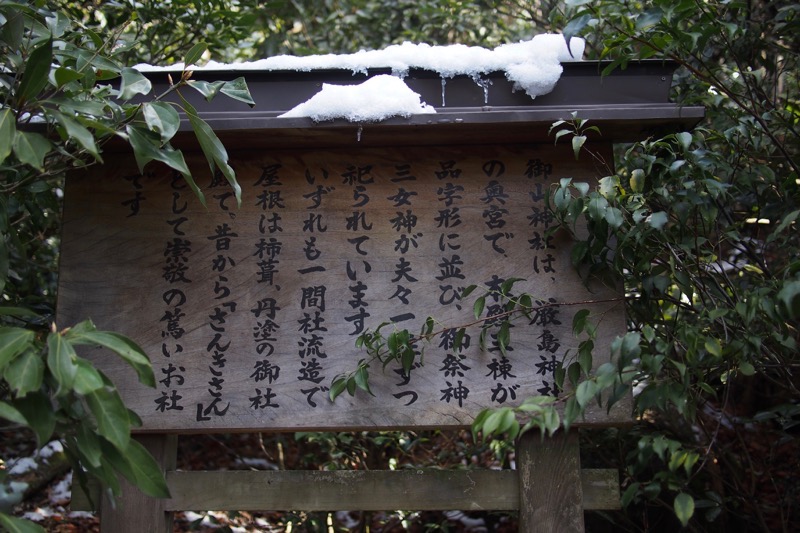 御山神社は、厳島神社
の奥宮で、本殿三棟が
品字形に並び、御祭神
三女神が夫々一 ずつ
祀られています
いずれも一間社流造で
屋根は柿葺、丹塗の御社
殿で、昔から「さんきさん」
として崇敬の篤いお社
です